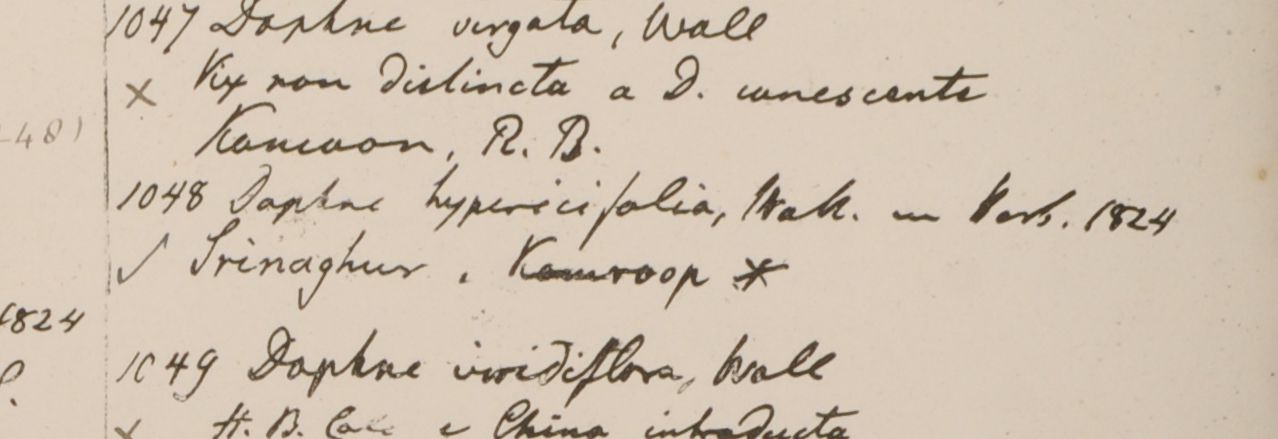 1047 Daphne virgata, Wall
x Vix non distincta a D. canescente
Kamaon, R. B.
-48)
1048 Daphne hypericifolia, Wall. in Herb. 1824
✓ Srinaghur. Kamroop *
1824
1049 Daphne viridiflora, Wall
x H. B. Calc e China introducta